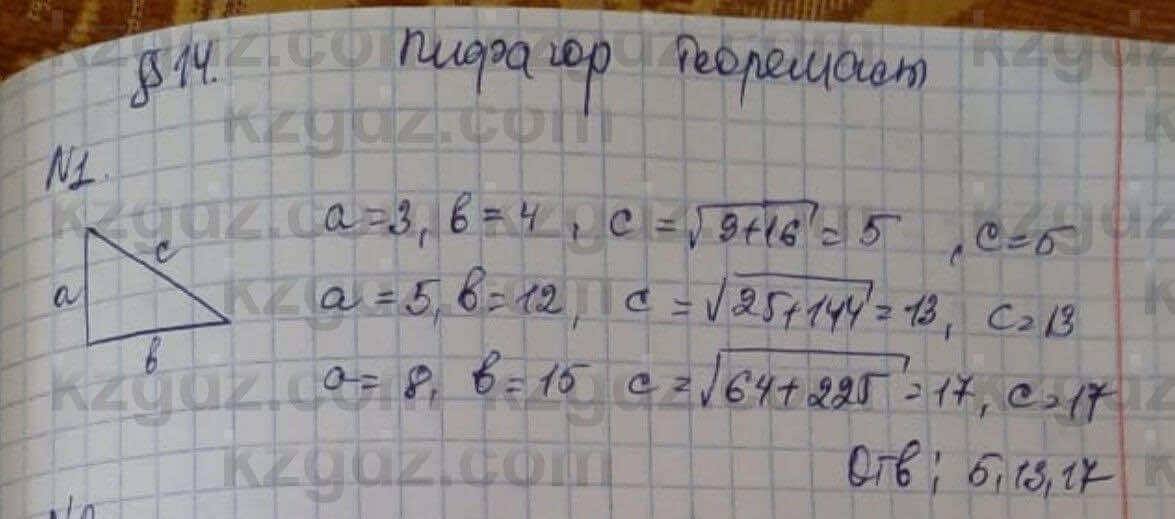 §14. Пифагор теоремасы
№1.
a = 3, b = 4, c = √9+16 = 5, c = 5
a = 5, b = 12, c = √25+144 = 13, c = 13
a = 8, b = 15 c = √64+225 = 17, c = 17
a
c
b
Отв; 5, 13, 17
kzgdz.com